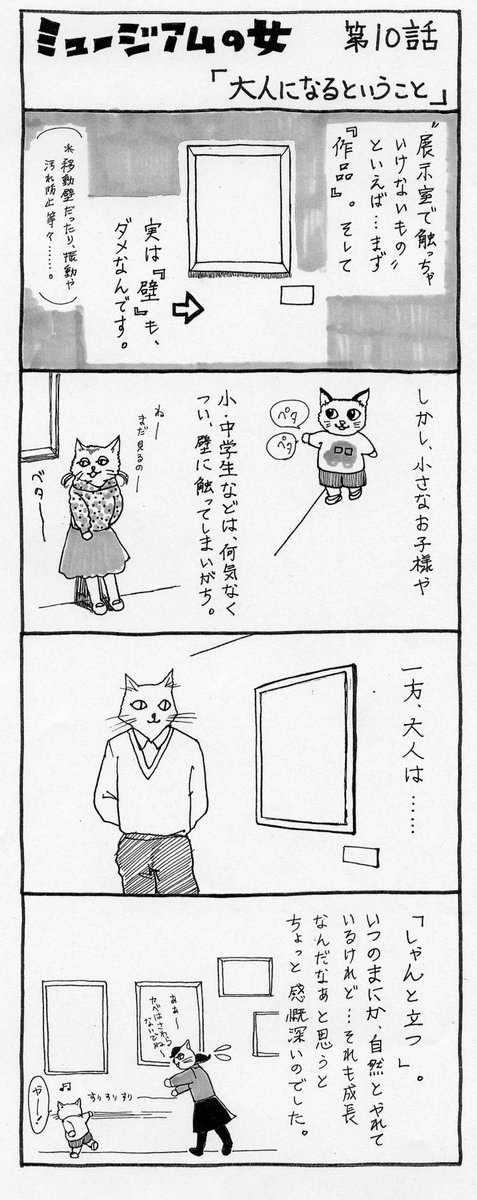 ミュージアムの女 第10話
「大人になるということ」
"展示室で触っちゃ
いけないもの"
といえば…まず
『作品』。そして
実は『壁』も、
ダメなんです。
(※移動壁だったり、振動や
汚れ防止等々……。)
しかし、小さなお子様や
ペタ
ペタ
小・中学生などは、何気なく
つい、壁に触ってしまいがち。
ねー
まだ見るのー
ベター
一方、大人は……
「しゃんと立つ」。
いつのまにか、自然とやれて
いるけれど…それも成長
なんだなぁと思うと
ちょっと感慨深いのでした。
あぁー
カベはさわら
ないでねー
すりすりすり
やー!